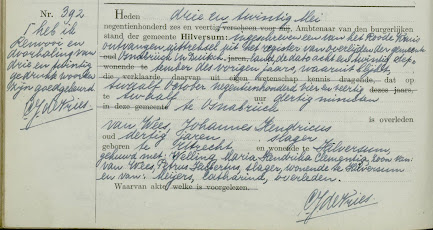 Nr. 392
Heden drie en twintig Mei
negentienhonderd zes en veertig verscheen voor mij, Ambtenaar van den burgerlijken
stand der gemeente Hilversum: ingeschreven een van het Roode Kruis
ontvangen uittreksel uit het register van overlijden der gemeente
oud Osnabrück in Duitschland, jaren,
wonende te van het vorige jaar, waaruit blijkt,
die verklaarde, daarvan uit eigen wetenschap kennis dragende, dat op
October negentienhonderd vier en veertig dezes jaars,
te uur dertig minuten
in deze gemeente te Osnabrück
is overleden
van Wees, Johannes Hendricus
oud dertig jaren slager
geboren te Utrecht en wonende te Hilversum,
gehuwd met: Welling, Maria Hendrika Clementia, zoon van:
van Wees, Petrus slager, wonende te Hilversum
en van: Meijers, Catharina, overleden.
Waarvan akte welke is voorgelezen.
CJdeVries
Ik heb ik
Renvooi en
doorhaling van
drie en twintig
gedrukte woorden
zijn goedgekeurd
CJdeVries